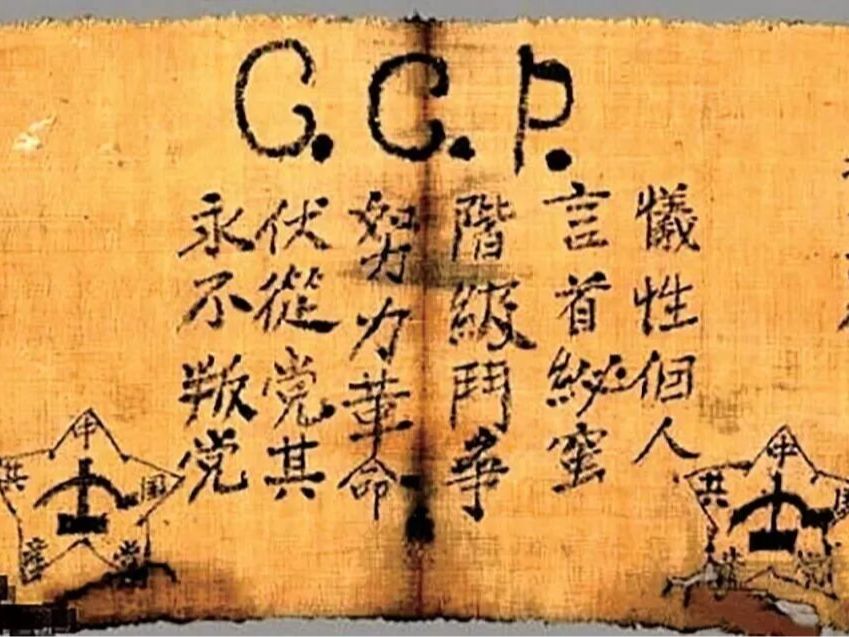 C.C.P.
犠牲個人
言首秘蜜
階級鬥争
努力革命
伏從党其
永不叛党
中国共産党
中国共